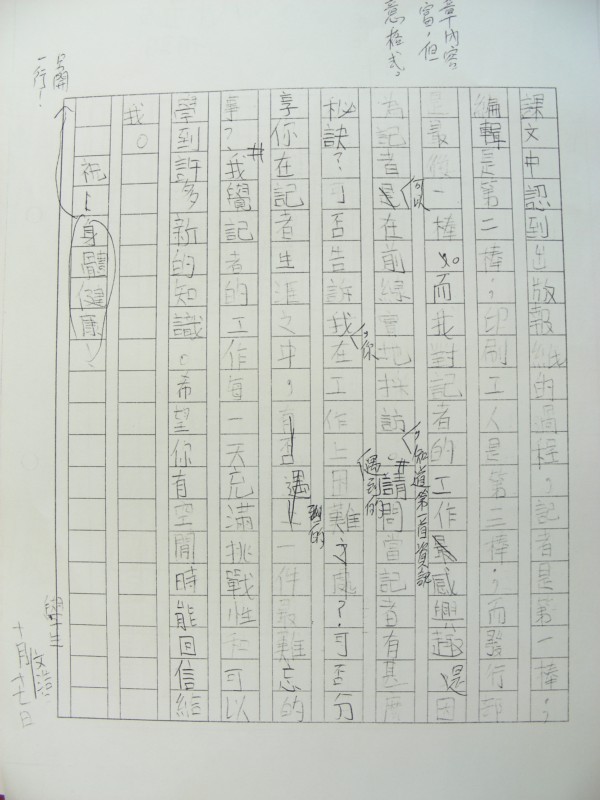 章內容
富,但
意格式。
課文中認到出版報紙的過程,記者是第一棒,
編輯是第二棒,印刷工人是第三棒,而發行
是最後一棒。而我對記者的工作最感興趣還因
為記者是在前線實地採訪。請問當記者有甚麼
可以
,知道第一首資訊
秘訣?可否告訴我在工作上困難之處?可否分
,你
遇到的
享你在記者生涯之中,有否遇一件最難忘的
到的
事?我覺記者的工作每一天充滿挑戰性和可以
學到許多新的知識。希望你有空閒時能回信給
我。
祝:身體健康!
另開
一行!
學生
十月十七日